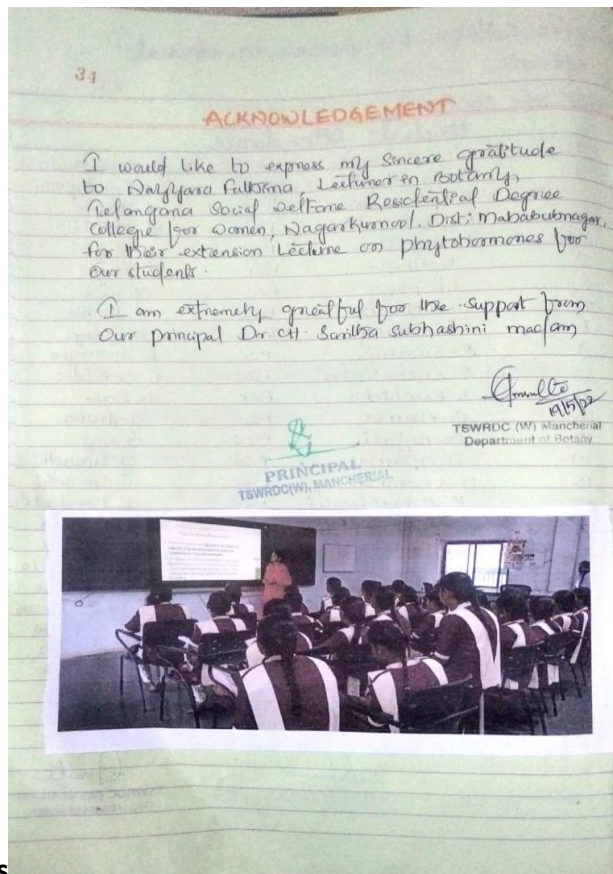 34
ACKNOWLEDGEMENT
I would like to express my sincere gratitude
to Lecturer in Botany,
Telangana Social welfare Residential Degree
College for women, Nagarkurnool. Dist; Mahabubnagar,
for their extension Lecture on phytohormones for
our students.
I am extremely greatful for the support from
Our principal Dr. CH. Saritha Subhashini madam
19/5/22
TSWRDC (W) Mancherial
Department of Botany
PRINCIPAL
TSWRDC(W), MANCHERIAL
s